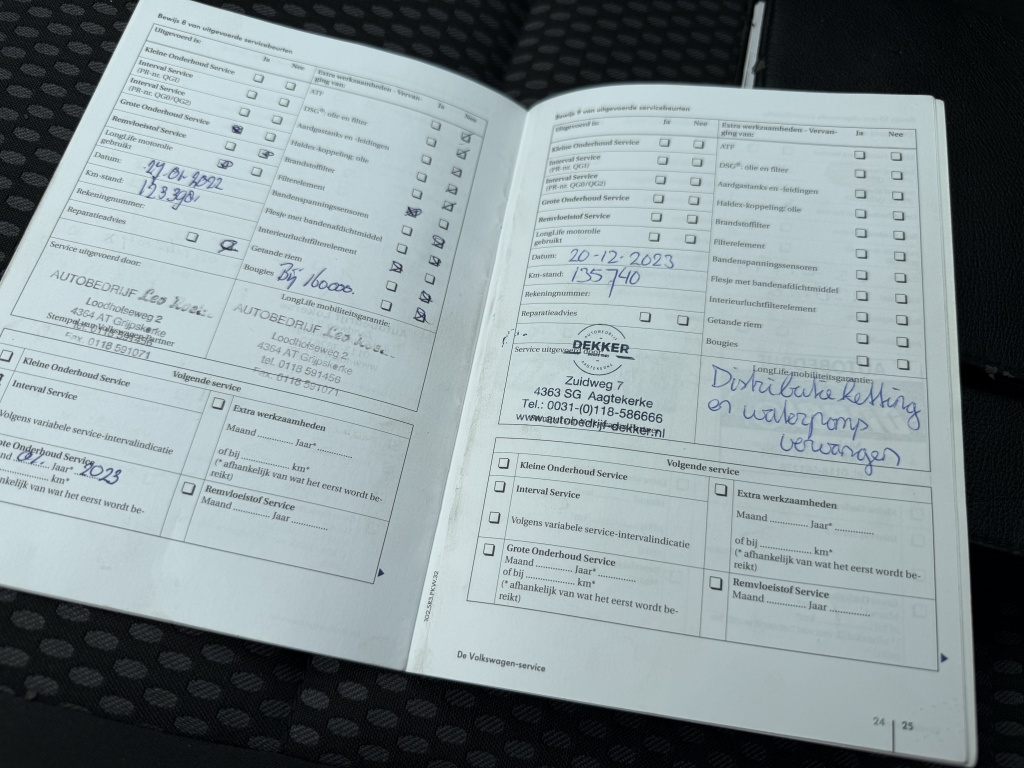 Bewijs 8 van uitgevoerde servicebeurten
Uitgevoerd is:
Ja Nee
Kleine Onderhoud Service
Interval Service
(PR-nr. QG1)
Interval Service
(PR-nr. QG0/QG2)
Grote Onderhoud Service
Remvloeistof Service
LongLife motorolie
gebruikt
Datum: 27.01.2022
Km-stand: 123.390
Rekeningnummer:
Reparatieadvies
Extra werkzaamheden - Vervan-
ging van:
Ja Nee
ATF
DSG®: olie en filter
Aardgastanks en -leidingen
Haldex-koppeling: olie
Brandstoffilter
Filterelement
Bandenspanningssensoren
Flesje met bandenafdichtmiddel
Interieurluchtfilterelement
Getande riem
Bougies Bij 160000.
Service uitgevoerd door:
AUTOBEDRIJF
Loodholseweg 2
4364 AT Grijpskerke
tel. 0118 591456
Fax. 0118 591071
Stempel van Volkswagen Partner
LongLife mobiliteitsgarantie:
AUTOBEDRIJF
Loodholseweg 2
4364 AT Grijpskerke
tel. 0118 591456
Fax. 0118 591071
Volgende service
Kleine Onderhoud Service
Interval Service
Volgens variabele service-intervalindicatie
Grote Onderhoud Service
Jaar* 2023
km*
(* afhankelijk van wat het eerst wordt be-
Extra werkzaamheden
Maand ............. Jaar* .............
of bij .................. km*
(* afhankelijk van wat het eerst wordt be-
reikt)
Remvloeistof Service
Maand ............. Jaar .............
Bewijs 9 van uitgevoerde servicebeurten
Uitgevoerd is:
Ja Nee
Kleine Onderhoud Service
Interval Service
(PR-nr. QG1)
Interval Service
(PR-nr. QG0/QG2)
Grote Onderhoud Service
Remvloeistof Service
LongLife motorolie
gebruikt
Datum: 20-12-2023
Km-stand: 135740
Rekeningnummer:
Reparatieadvies
Extra werkzaamheden - Vervan-
ging van:
Ja Nee
ATF
DSG®: olie en filter
Aardgastanks en -leidingen
Haldex-koppeling: olie
Brandstoffilter
Filterelement
Bandenspanningssensoren
Flesje met bandenafdichtmiddel
Interieurluchtfilterelement
Getande riem
Bougies
Service uitgevoerd door:
AUTOBEDRIJF
DEKKER
AAGTEKERKE
Zuidweg 7
4363 SG Aagtekerke
Tel.: 0031-(0)118-586666
www.autobedrijf-dekker.nl
LongLife mobiliteitsgarantie:
Distributie ketting
en waterpomp
vervangen
Volgende service
Kleine Onderhoud Service
Interval Service
Volgens variabele service-intervalindicatie
Grote Onderhoud Service
Maand ............. Jaar* .............
of bij .................. km*
(* afhankelijk van wat het eerst wordt be-
reikt)
Extra werkzaamheden
Maand ............. Jaar* .............
of bij .................. km*
(* afhankelijk van wat het eerst wordt be-
reikt)
Remvloeistof Service
Maand ............. Jaar .............
302.5R3.PKW.32
De Volkswagen-service
24 | 25